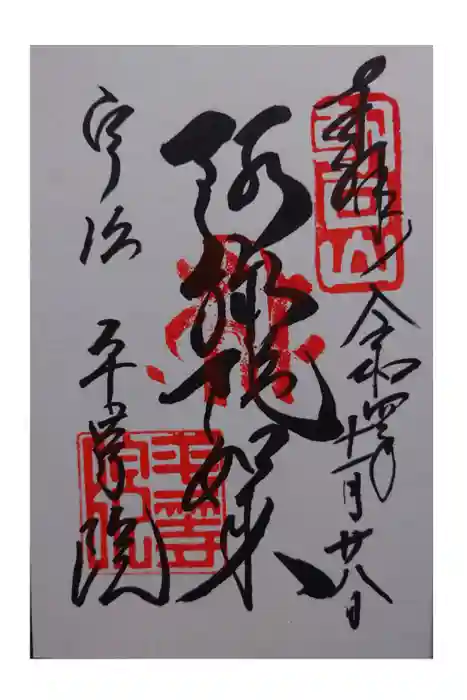 奉拝
令和四年十一月廿八日
阿弥陀如来
宇治
平等院